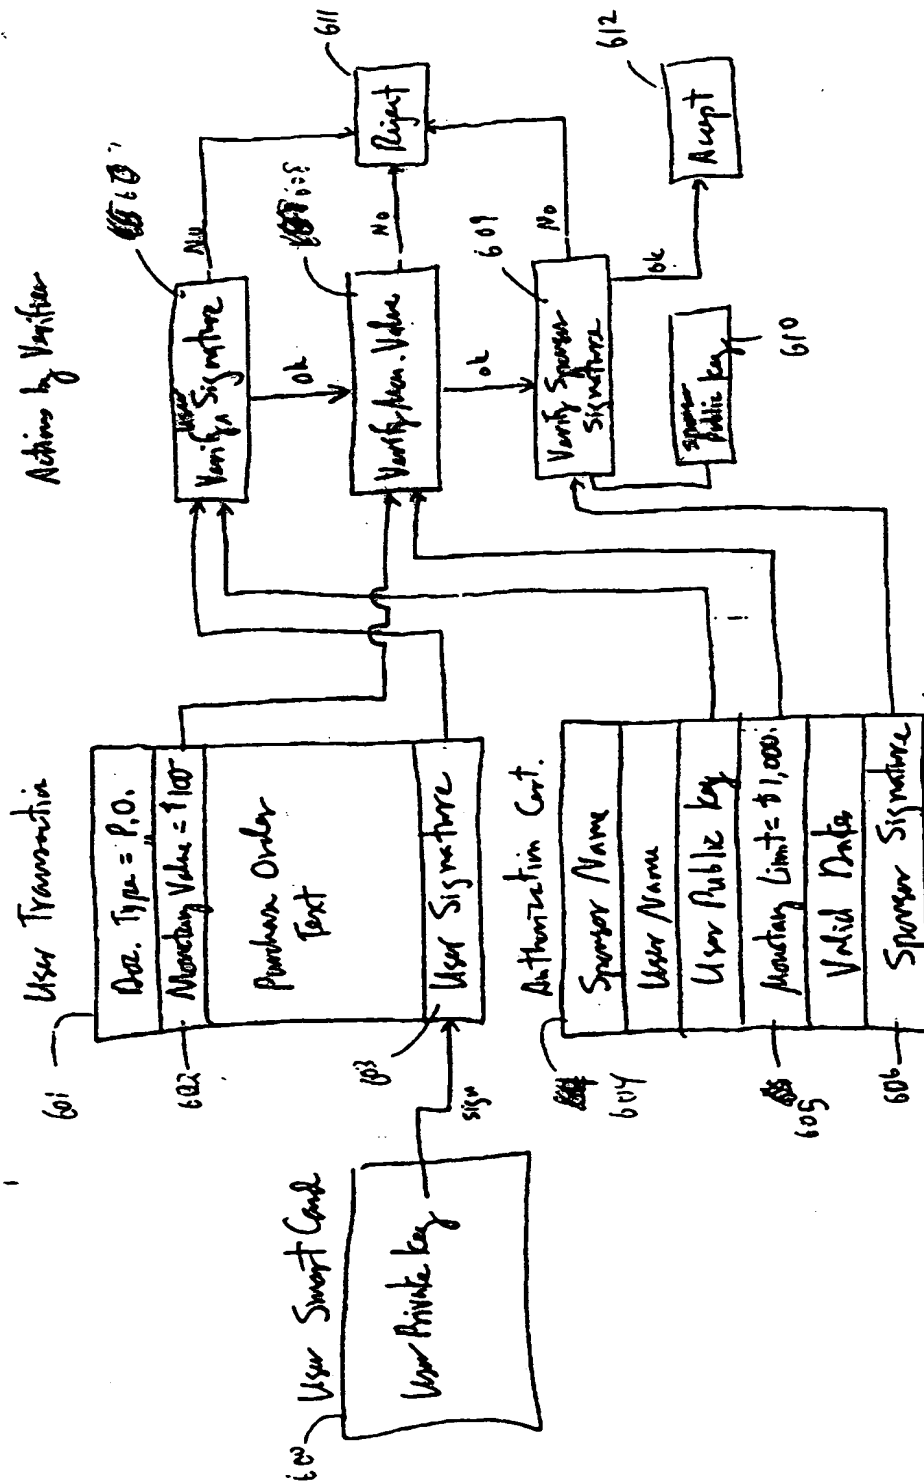 User Smart Card
600
User Private Key
sign
User Transaction
601
Doc. Type = P.O.
Monetary Value = $100
602
Purchase Order
Text
603
User Signature
Authorization Cert.
604
Sponsor Name
User Name
User Public Key
Monetary Limit = $1,000.
605
Valid Date
Sponsor Signature
606
Actions by Verifier
User
Verify Signature
No
ok
Verify Mon. Value
No
ok
609
Verify Sponsor
Signature
No
ok
Sponsor
Public Key
610
Reject
611
Accept
612